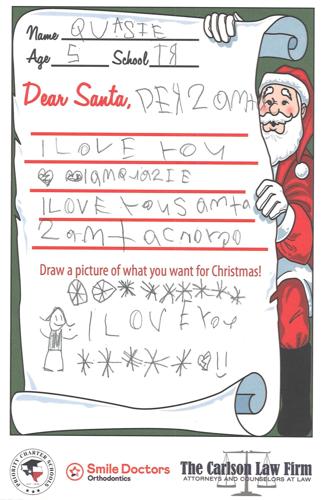 Name QUASIE
Age 5 School TR
Dear Santa, DER 2 amta
I LOVE YOU
IAMQUAZIE
I LOVE YOU SAmta
2amtacnorpo
Draw a picture of what you want for Christmas!
I LOVE You
!!
PRIORITY CHARTER SCHOOLS
Smile Doctors
Orthodontics
The Carlson Law Firm
ATTORNEYS AND COUNSELORS AT LAW